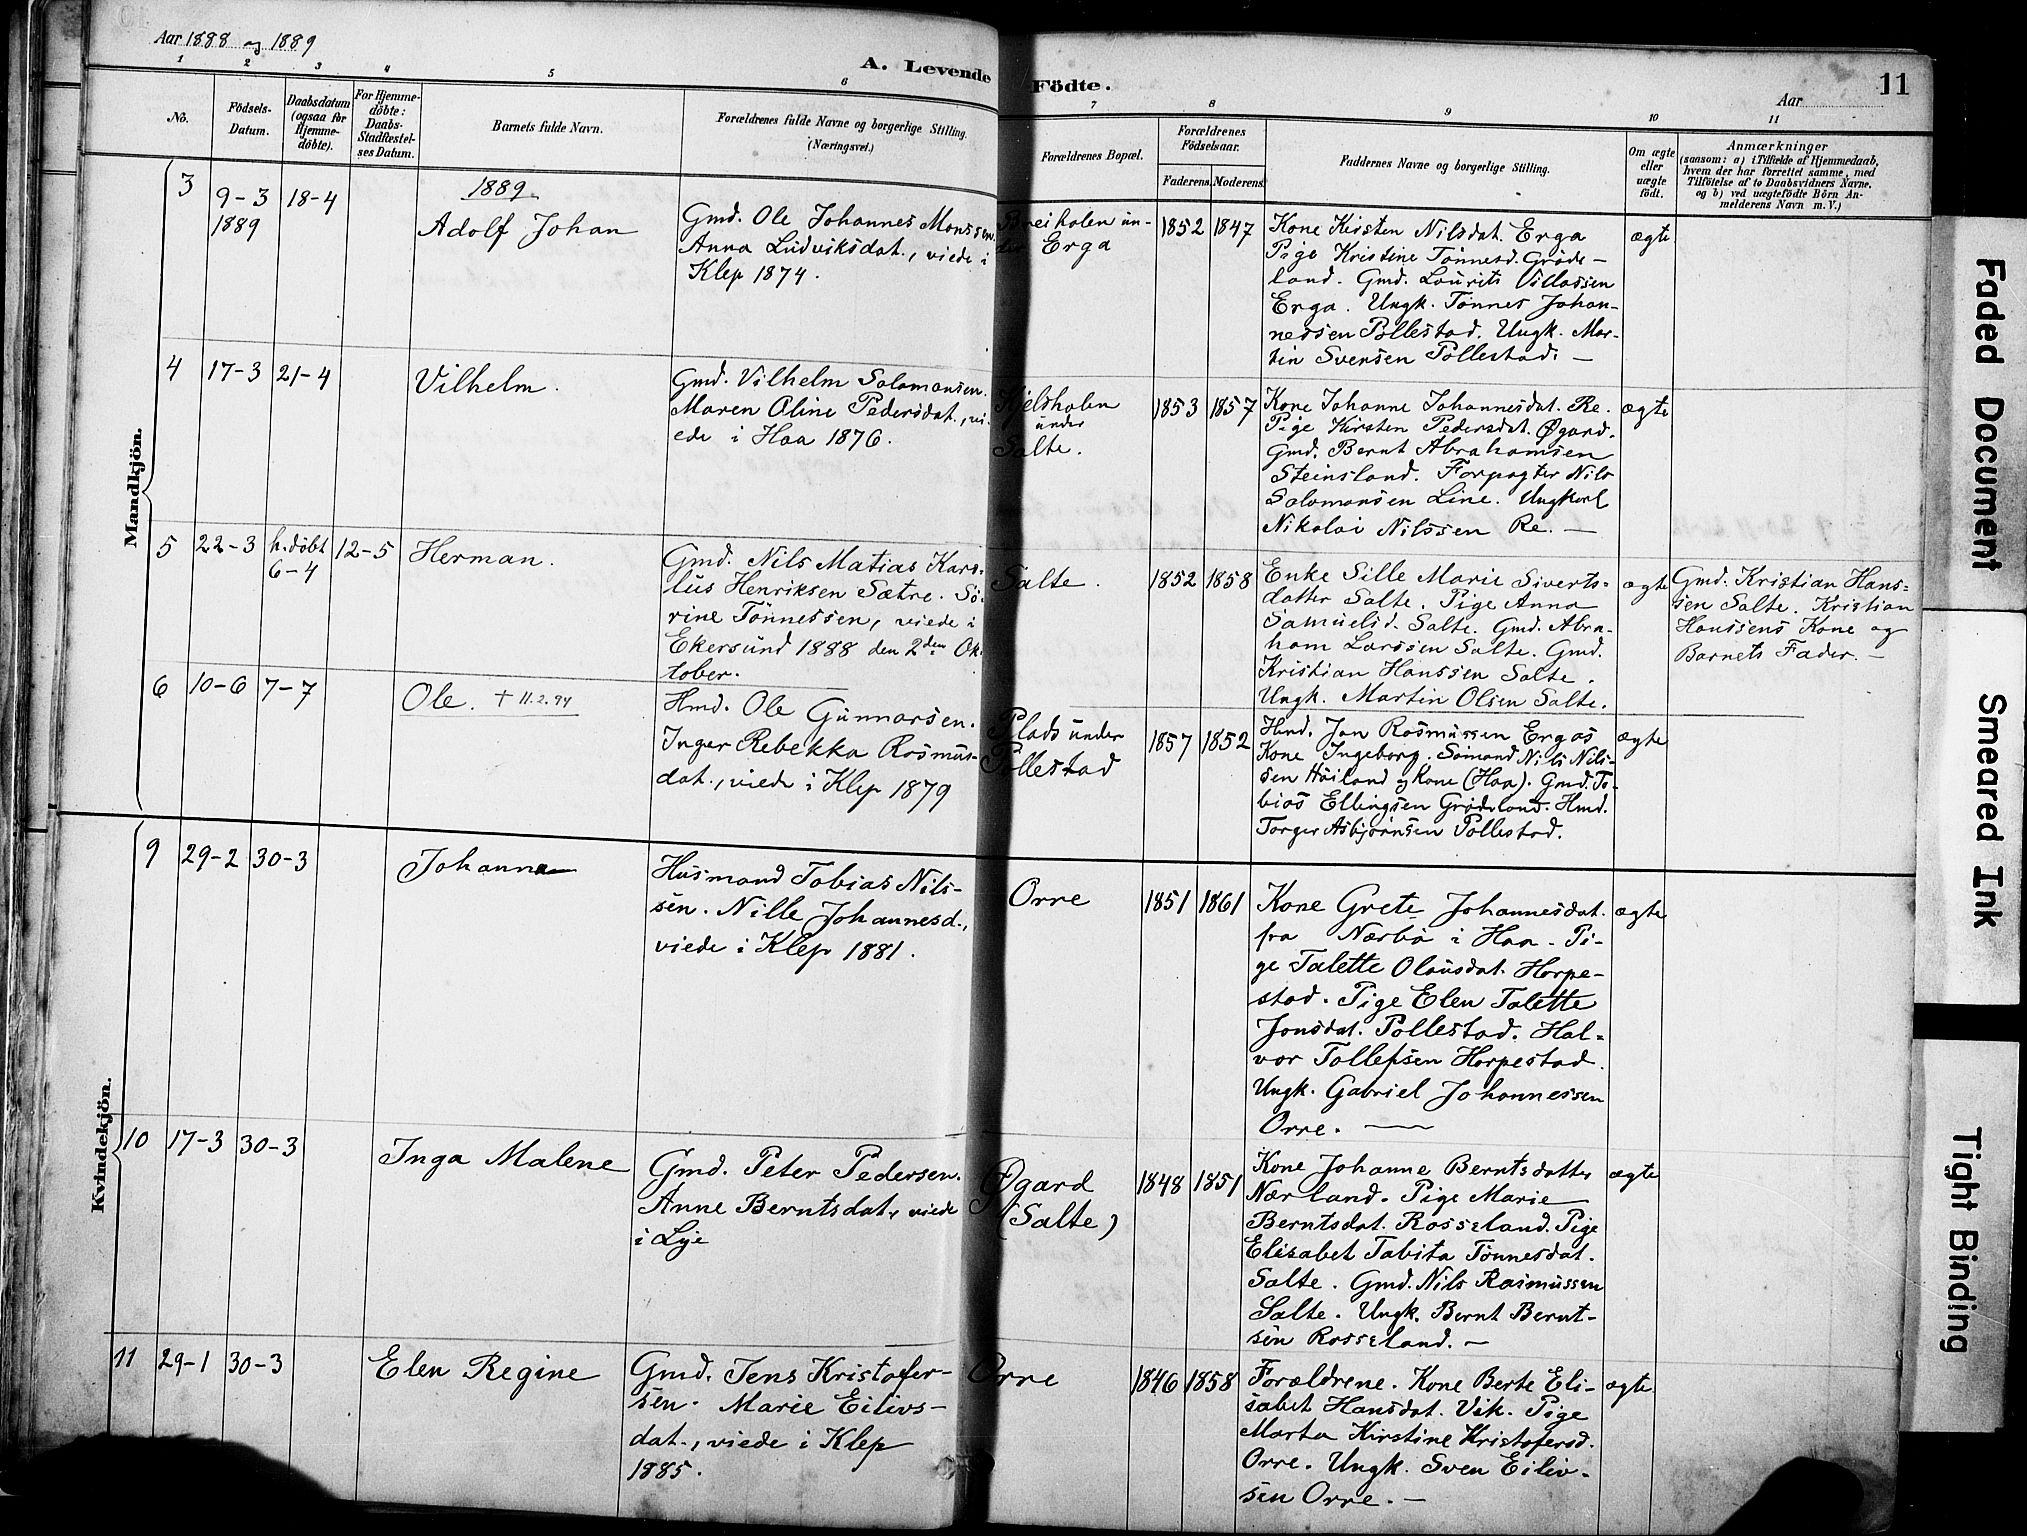 Aar 1888 og 1889
A. Levende Födte.
Aar
11
1 2 3 4 5 6 7 8 9 10 11
No.
Födsels-
Datum.
Daabsdatum
(ogsaa for
Hjemme-
döbte).
For Hjemme-
döbte:
Daabs-
Stadfæstel-
ses Datum.
Barnets fulde Navn.
Forældrenes fulde Navne og borgerlige Stilling.
(Næringsvei.)
Forældrenes Bopæl.
Forældrenes
Födselsaar.
Faderens. Moderens.
Faddernes Navne og borgerlige Stilling.
Om ægte
eller
uægte
födt.
Anmærkninger
(saasom: a) i Tilfælde af Hjemmedaab,
hvem der har forrettet samme, med
Tilföielse af to Daabsvidners Navne,
og b) ved uægtefödte Börn An-
melderens Navn m. V.)
Mandkjön.
3
9-3
1889
18-4
1889.
Adolf Johan
Gmd. Ole Johannes Monssen.
Anna Ludviksdat., viede i
Klep 1874.
Breiholen un-
der Erga
1852
1847
Kone Kirsten Nilsdat. Erga
Pige Kristine Tönnesd. Gröde-
land. Gmd. Laurits Villassen
Erga. Ungk. Tönnes Johan-
nessen Pollestad. Ungk. Mar-
tin Svensen Pollestad. —
ægte
4
17-3
21-4
Vilhelm.
Gmd. Vilhelm Salamonsen.
Maren Oline Pedersdat., vi-
ede i Haa 1876.
Kjelsholen
under
Salte.
1853
1857
Kone Johanne Johannesdat. Re.
Pige Kirsten Pedersdat. Øgard.
Gmd. Bernt Abrahamsen
Steinsland. Forpagter Nils
Salamonsen Line. Ungkarl
Nikolai Nilssen Re. —
ægte
5
22-3
h. döbt
6-4
12-5
Herman.
Gmd. Nils Matias Karo-
lius Henriksen Sætre. Sö-
rine Tönnessen, viede i
Ekersund 1888 den 2den Ok-
tober.
Salte.
1852
1858
Enke Sille Marie Siverts-
datter Salte. Pige Anna
Samuelsd. Salte. Gmd. Abra-
ham Larssen Salte. Gmd.
Kristian Hanssen Salte.
Ungk. Martin Olsen Salte.
ægte
Gmd. Kristian Hans-
sen Salte. Kristian
Hanssens Kone og
Barnets Fader. —
6
10-6
7-7
Ole. + 11.2.94
Hmd. Ole Gunnarsen.
Inger Rebekka Rasmus-
dat., viede i Klep 1879
Plads under
Pollestad
1857
1852
Hmd. Jan Rasmussen Ergas
Kone Ingeborg. Sömand Nils Nils-
sen Höiland og Kone (Haa). Gmd. To-
bias Ellingsen Grödeland. Hmd.
Torger Asbjörnsen Pollestad.
ægte
Kvindekjön.
9
29-2
30-3
Johanna
Husmand Tobias Nils-
sen. Nille Johannesd.,
viede i Klep 1881.
Orre
1851
1861
Kone Grete Johannesdat.
fra Nærbö i Haa. Pi-
ge Talette Olausdat. Horpe-
stad. Pige Elen Talette
Jonsdat. Pollestad. Hal-
vor Tollefsen Horpestad.
Ungk. Gabriel Johannessen
Orre. —
ægte
10
17-3
30-3
Inga Malene
Gmd. Peter Pedersen.
Anne Berntsdat., viede
i Lye
Øgard
(Salte)
1848
1851
Kone Johanne Berntsdatter
Nærland. Pige Marie
Berntsdat. Rosseland. Pige
Elisabet Tabita Tönnesdat.
Salte. Gmd. Nils Rasmussen
Salte. Ungk. Bernt Bernt-
sen Rosseland. —
ægte
11
29-1
30-3
Elen Regine
Gmd. Jens Kristofer-
sen. Marie Eilivs-
dat., viede i Klep
1885.
Orre
1846
1858
Forældrene. Kone Berte Eli-
sabet Hansdat. Vik. Pige
Marta Kirstine Kristofersd.
Orre. Ungk. Sven Eiliv-
sen Orre. —
ægte.
Faded Document
Smeared Ink
Tight Binding